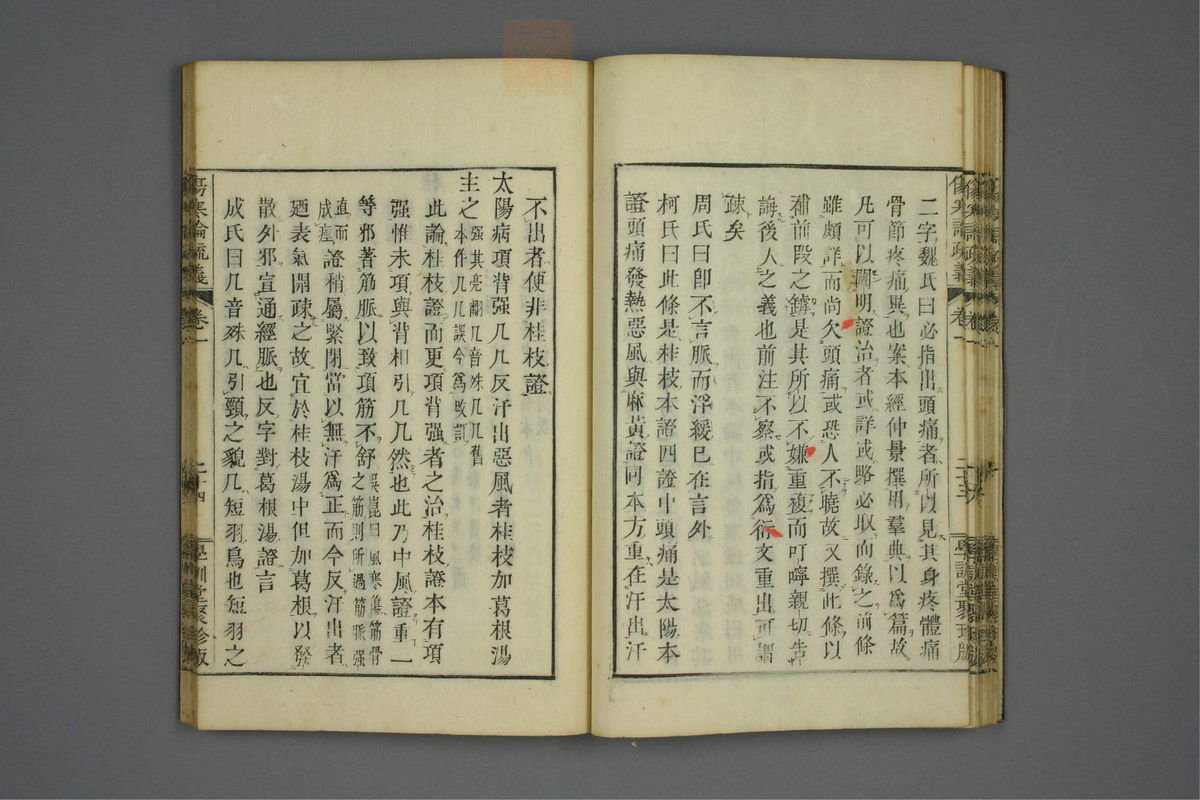 二字魏氏曰必指出頭痛者所以見其身疼體痛
骨節疼痛異也案本經仲景撰用羣典以爲篇故
凡可以闡明證治者或詳或略必取而錄之前條
雖頗詳而尚欠頭痛或恐人不曉故又撰此條以
補前段之罅是其所以不嫌重複而叮嚀親切告
誨後人之義也前注不察或指爲衍文重出可謂
疎矣
周氏曰卽不言脈而浮緩已在言外
柯氏曰此條是桂枝本證四證中頭痛是太陽本
證頭痛發熱惡風與麻黃證同本方重在汗出汗
不出者便非桂枝證
太陽病項背强几几反汗出惡風者桂枝加葛根湯
主之强其亮翻几音殊几几舊本作几几誤今爲改訂
此論桂枝證而更項背强者之治桂枝證本有項
强惟未項與背相引几几然也此乃中風證重一
等邪著筋脈以致項筋不舒吳崑曰風寒傷筋骨之筋則所過筋脈强
直而成痙證稍屬緊閉當以無汗爲正而今反汗出者
廼表氣開疎之故宜於桂枝湯中但加葛根以發
散外邪宣通經脈也反字對葛根湯證言
成氏曰几音殊几引頸之貌几短羽鳥也短羽之
傷寒論疏義
卷一
二十三
學訓堂聚珍版
傷寒論疏義
卷一
二十四
學訓堂聚珍版